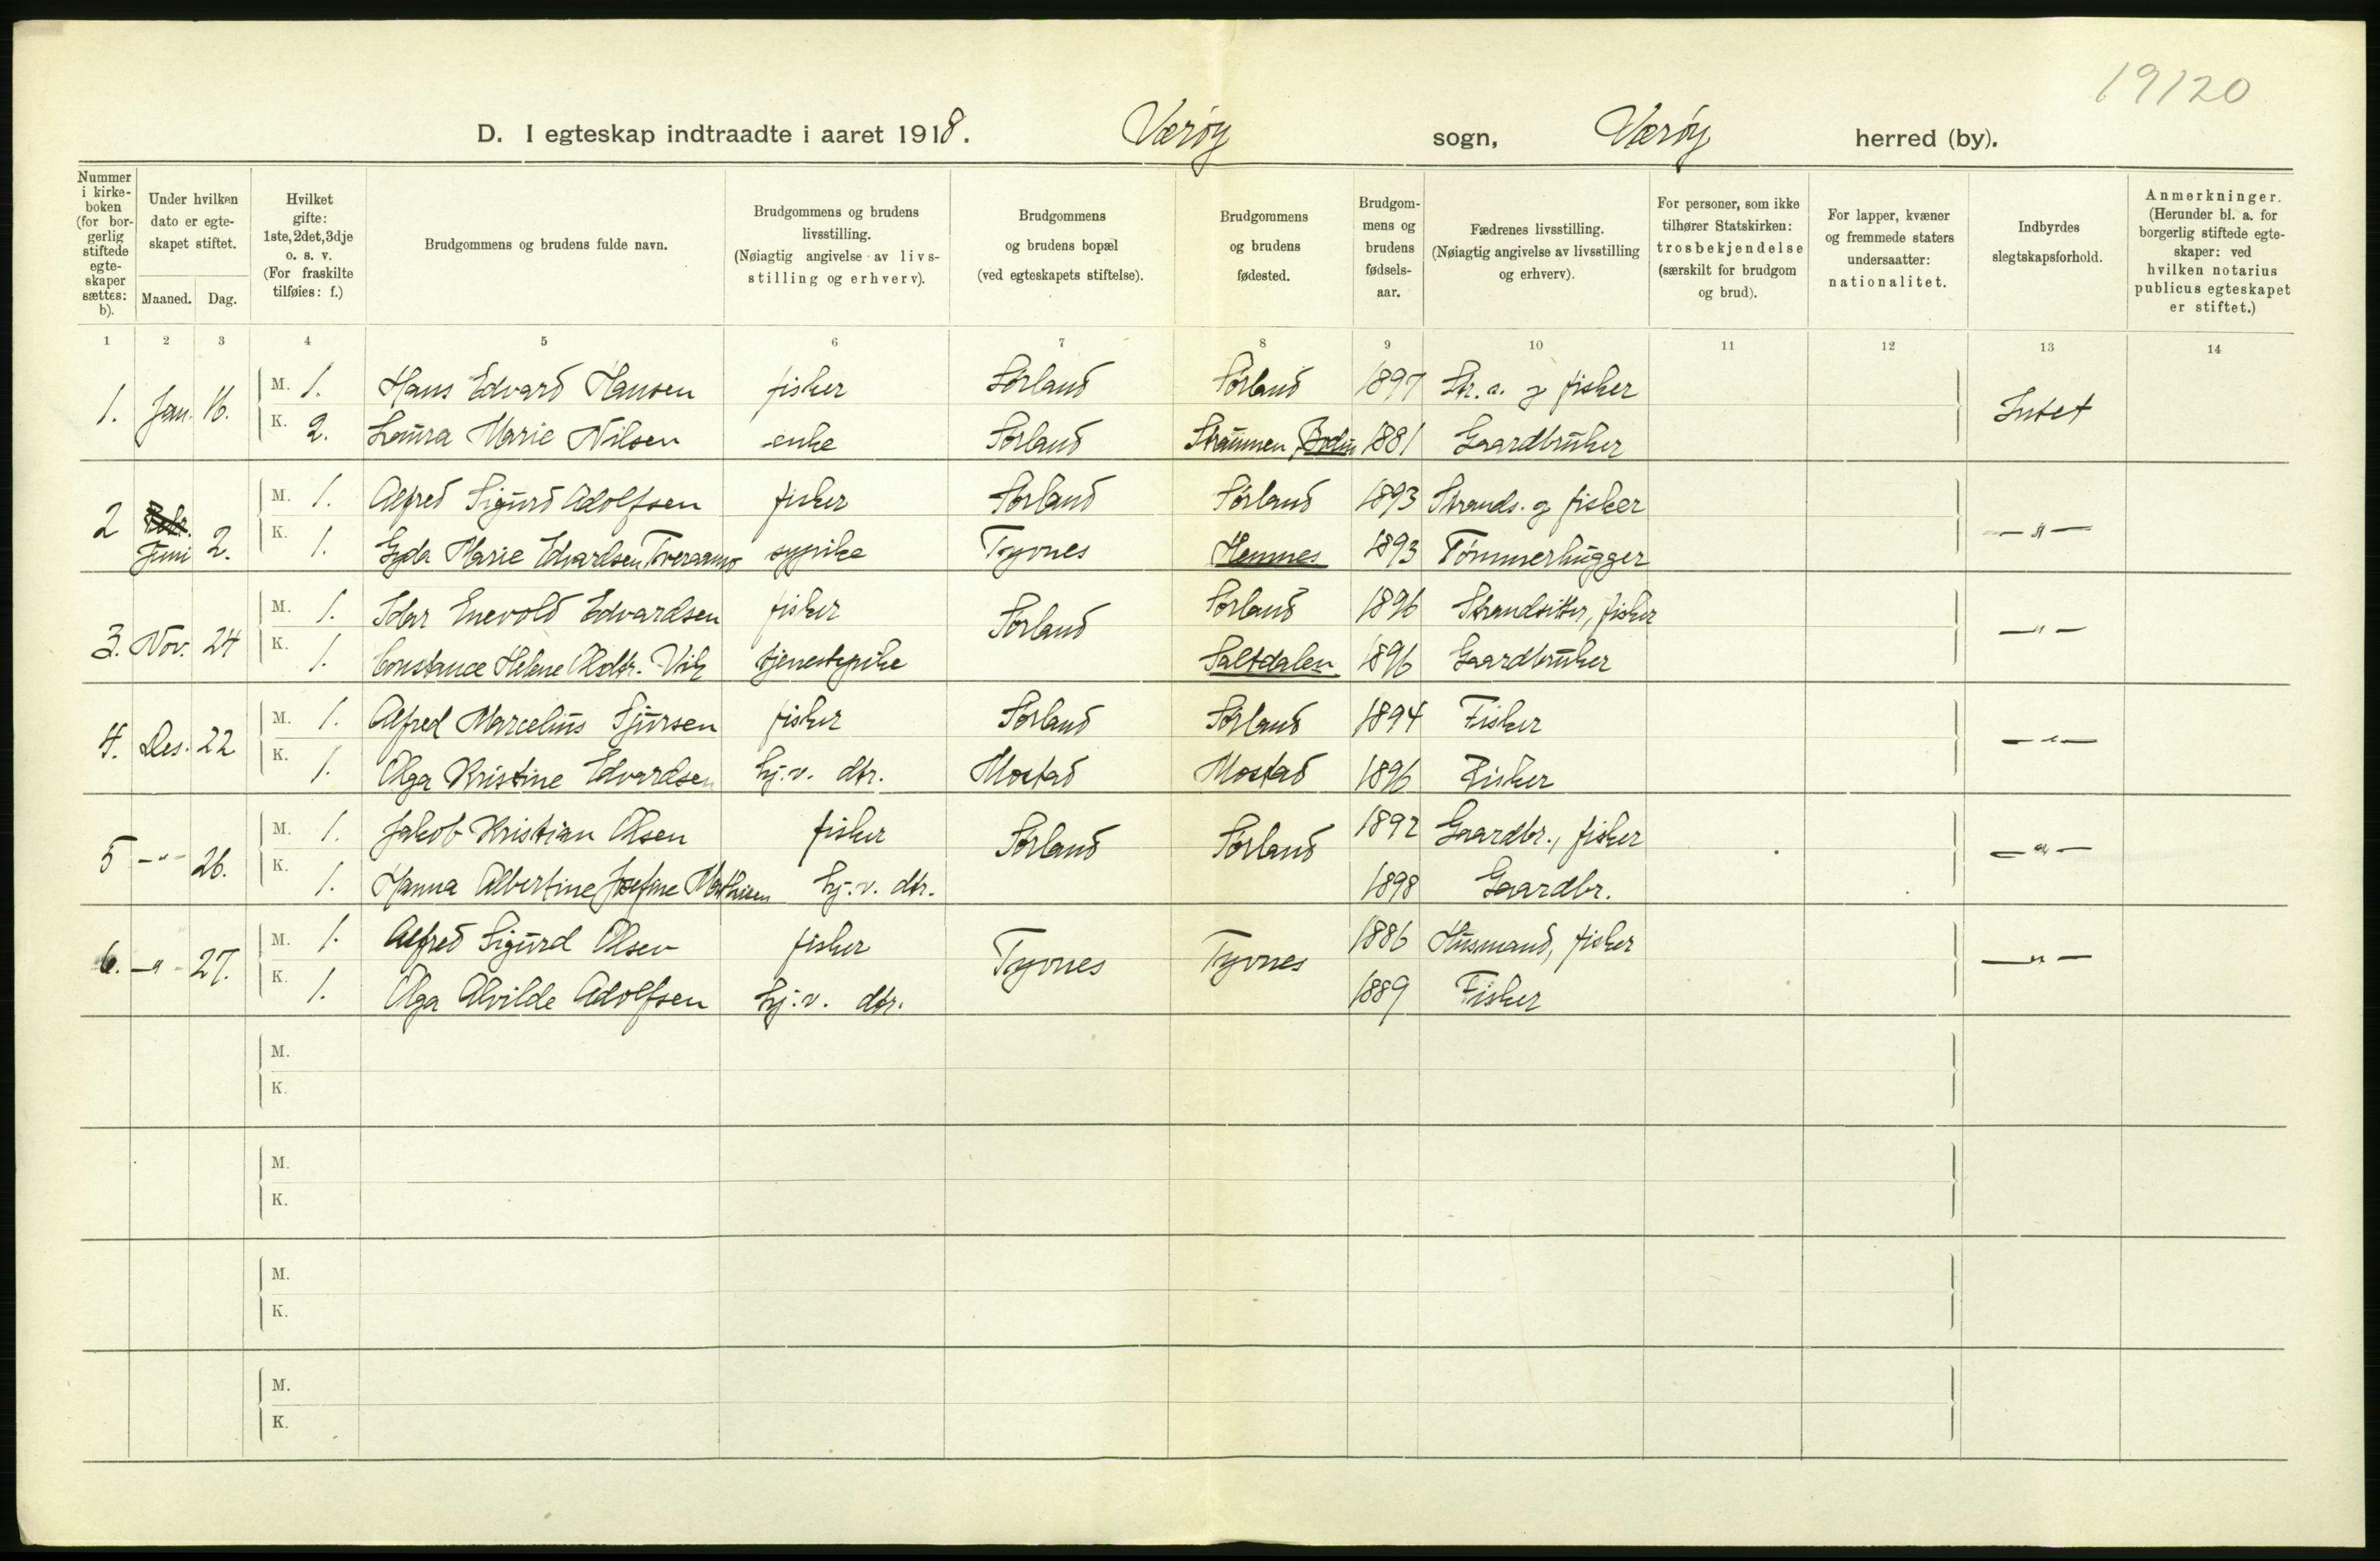 19120
D. I egteskap indtraadte i aaret 1918. Værøy sogn, Værøy herred (by).
Nummer i kirke-boken (for bor-gerlig stiftede egte-skaper sættes: b).
Under hvilken dato er egte-skapet stiftet.
Maaned. Dag.
Hvilket gifte: 1ste, 2det, 3dje o. s. v. (For fraskilte tilføies: f.)
Brudgommens og brudens fulde navn.
Brudgommens og brudens livsstilling. (Nøiagtig angivelse av livs-stilling og erhverv).
Brudgommens og brudens bopæl (ved egteskapets stiftelse).
Brudgommens og brudens fødested.
Brudgom-mens og brudens fødsels-aar.
Fædrenes livsstilling. (Nøiagtig angivelse av livsstilling og erhverv).
For personer, som ikke tilhører Statskirken: trosbekjendelse (særskilt for brudgom og brud).
For lapper, kvæner og fremmede staters undersaatter: nationalitet.
Indbyrdes slegtskapsforhold.
Anmerkninger. (Herunder bl. a. for borgerlig stiftede egte-skaper: ved hvilken notarius publicus egteskapet er stiftet.)
1 2 3 4 5 6 7 8 9 10 11 12 13 14
1. Jan. 16. M. 1. Hans Edvard Hansen fisker Sørland Sørland 1897 Str. s. og fisker Intet
K. 2. Laura Marie Nilsen enke Sørland Straumen, Bodin 1881 Gaardbruker
2 Febr. M. 1. Alfred Sigurd Adolfsen fisker Sørland Sørland 1893 Strands. og fisker —"—
Juni 2. K. 1. Gyda Marie Edvardsen Tveraamo sypike Tyvnes Hemnes 1893 Tømmerhugger
3. Nov. 24 M. 1. Idar Enevold Edvardsen fisker Sørland Sørland 1896 Strandsitter, fisker —"—
K. 1. Constance Helene Olsdtr. Vik tjenestepike Saltdalen 1896 Gaardbruker
4. Des. 22 M. 1. Alfred Marcelius Sjursen fisker Sørland Sørland 1894 Fisker —"—
K. 1. Olga Kristine Edvardsen hj. v. dtr. Mostad Mostad 1896 Fisker
5 -"- 26. M. 1. Jakob Kristian Olsen fisker Sørland Sørland 1892 Gaardbr., fisker —"—
K. 1. Hanna Albertine Josefine Mathisen hj. v. dtr. 1898 Gaardbr.
6. -"- 27. M. 1. Alfred Sigurd Olsen fisker Tyvnes Tyvnes 1886 Husmand, fisker —"—
K. 1. Olga Alvilde Adolfsen hj. v. dtr. 1889 Fisker
M.
K.
M.
K.
M.
K.
M.
K.